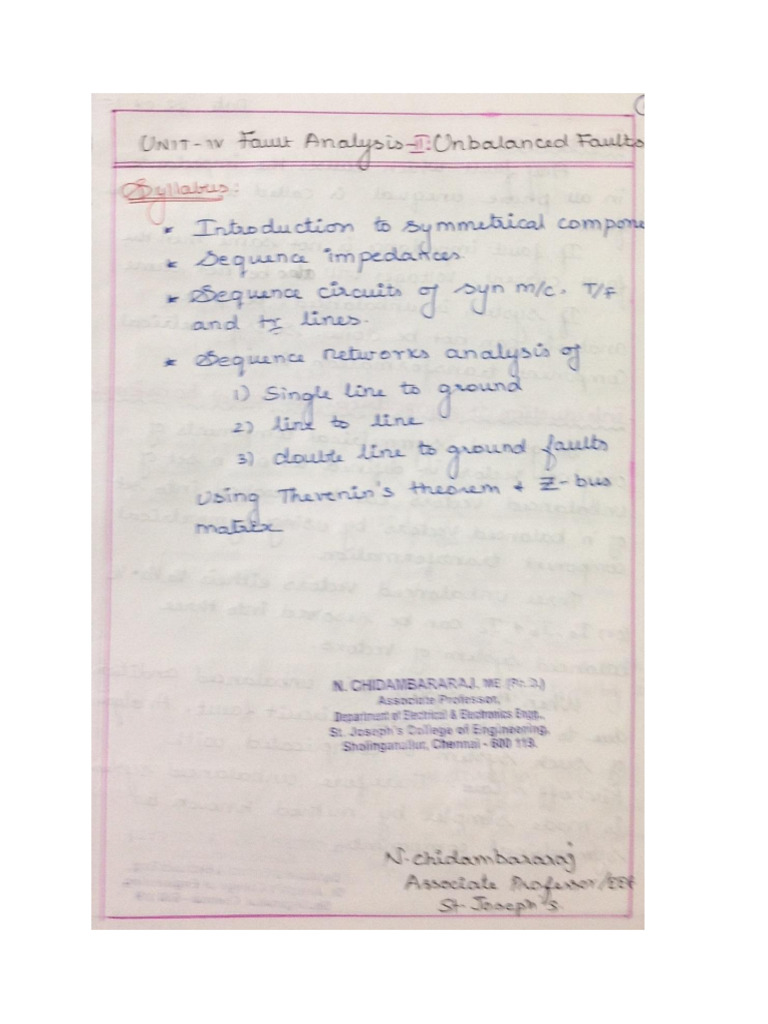 UNIT-IV Fault Analysis-II: Unbalanced Faults
Syllabus:
* Introduction to symmetrical compone
* Sequence impedances.
* Sequence circuits of syn m/c, T/F
and tr lines.
* Sequence networks analysis of
1) Single line to ground
2) line to line
3) double line to ground faults
Using Thevenin's theorem + Z-bus
matrix
N. CHIDAMBARARAJ, ME.(Ph.D.)
Associate Professor,
Department of Electrical & Electronics Engg.,
St. Joseph's College of Engineering,
Sholinganallur, Chennai - 600 119.
N. Chidambararaj
Associate Professor/EEE
St. Joseph's.